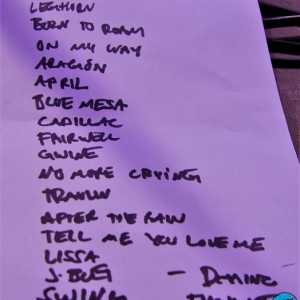 LEGHORN
BORN TO ROAM
ON MY WAY
ARAGÓN
APRIL
BLUE MESA
CADILLAC
FAIRWELL
GWINE
NO MORE CRYING
AFTER THE RAIN
TELL ME YOU LOVE ME
LISSA
J. BUG -
SWING